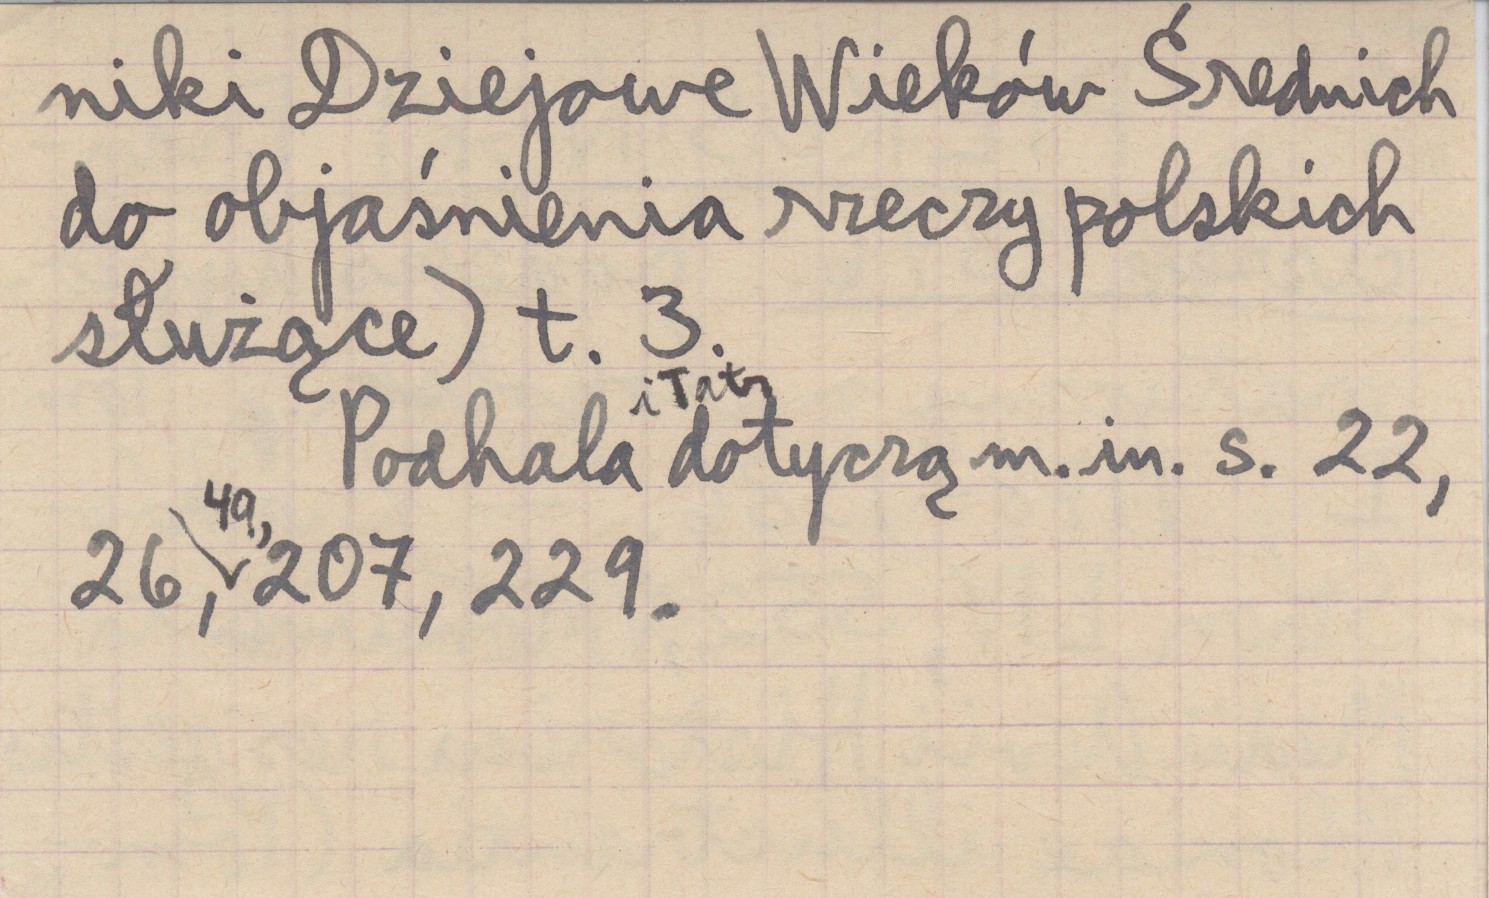 niki Dziejowe Wieków Średnich
do objaśnienia rzeczy polskich
służące) t. 3.
i Tatr
Podhala dotyczą m. in. s. 22,
49,
26, 207, 229.